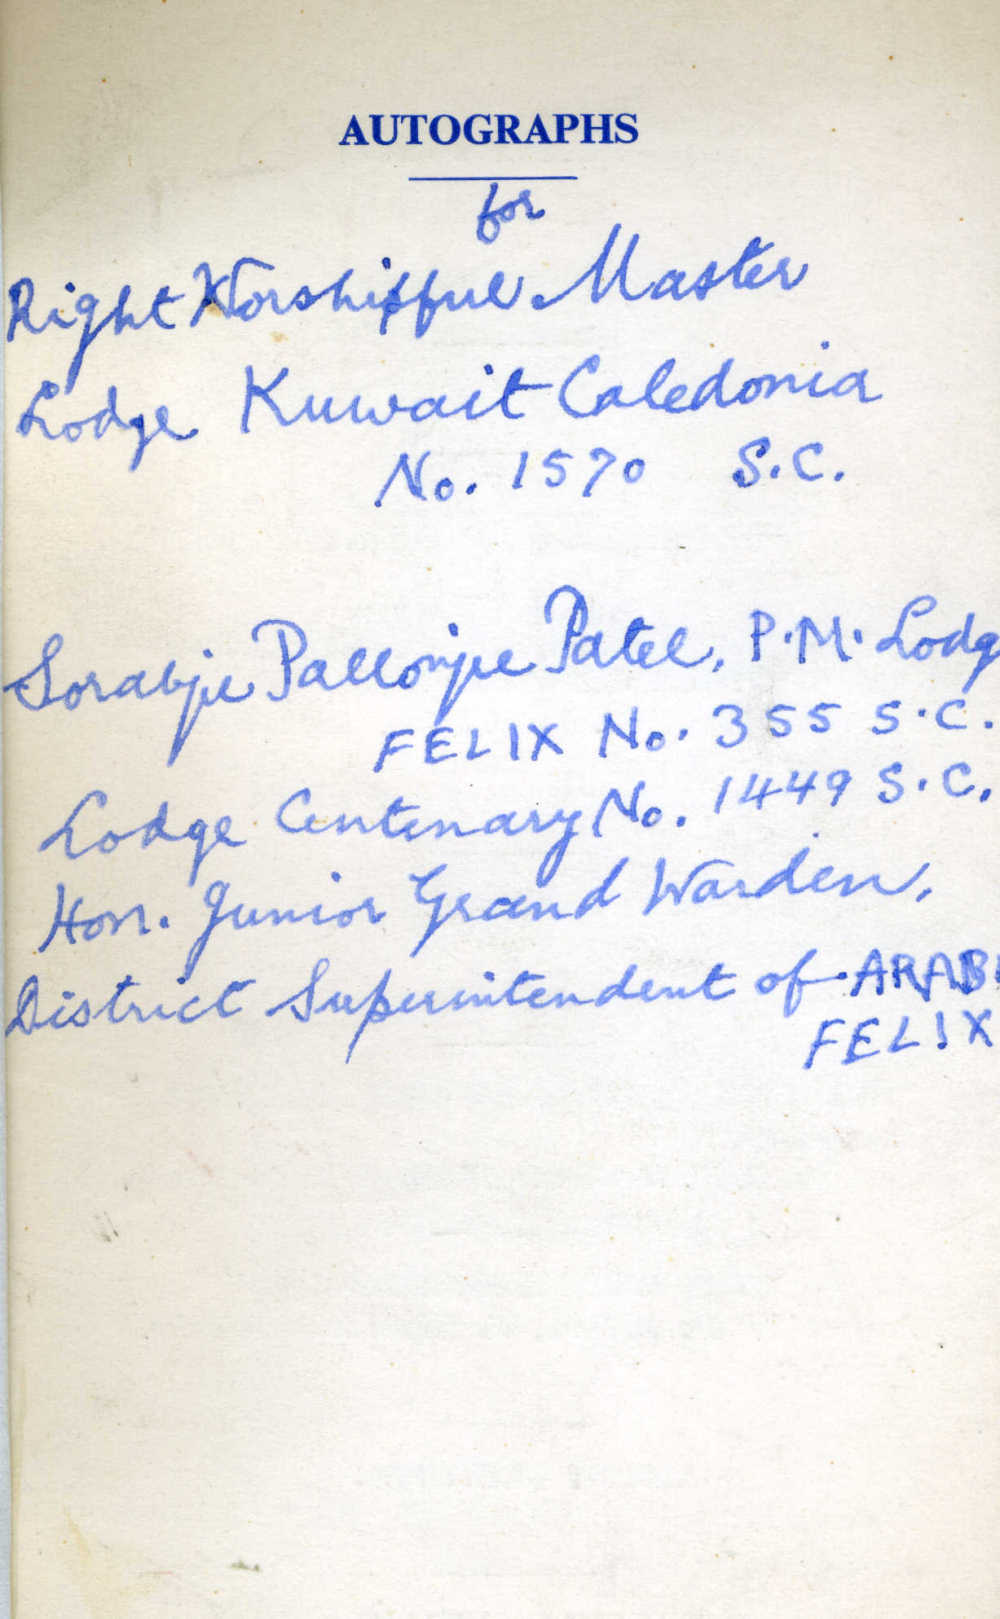 AUTOGRAPHS
for
Right Worshipful Master
Lodge Kuwait Caledonia
No. 1570 S.C.
Sorabjee Pallonjee Patel, P.M. Lodg
FELIX No. 355 S.C.
Lodge Centenary No. 1449 S.C.
Hon. Junior Grand Warden,
District Superintendent of ARABI
FELIX